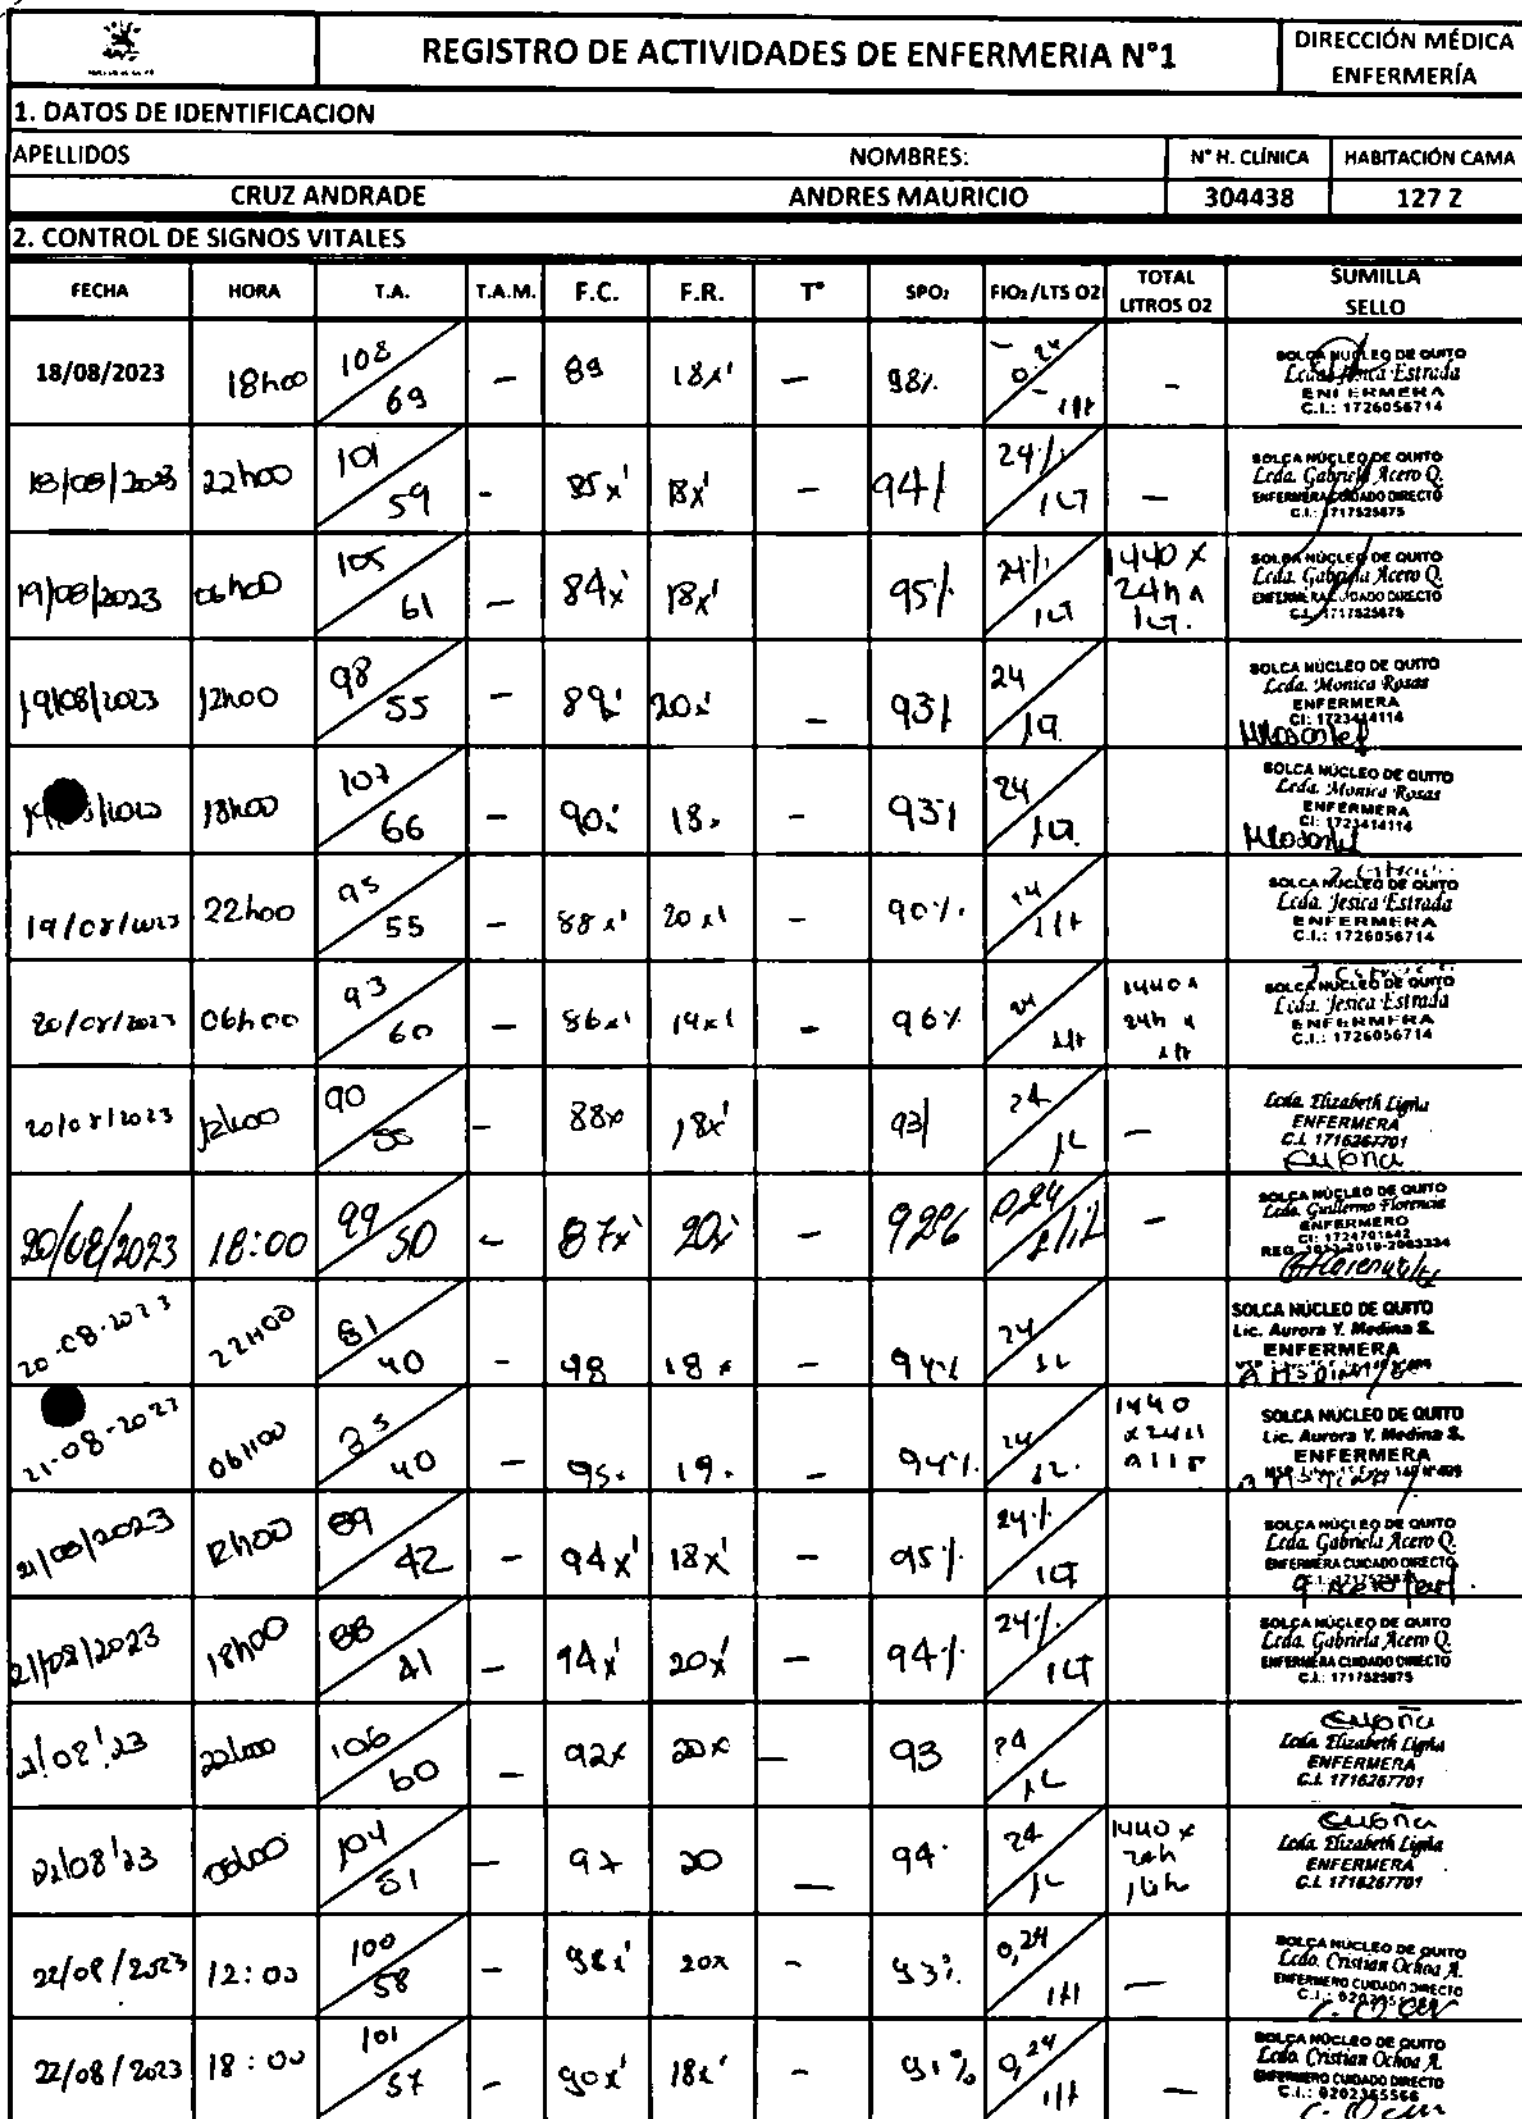 REGISTRO DE ACTIVIDADES DE ENFERMERIA N°1
DIRECCIÓN MÉDICA
ENFERMERÍA
1. DATOS DE IDENTIFICACION
APELLIDOS NOMBRES: N° H. CLÍNICA HABITACIÓN CAMA
CRUZ ANDRADE ANDRES MAURICIO 304438 127 Z
2. CONTROL DE SIGNOS VITALES
FECHA HORA T.A. T.A.M. F.C. F.R. T° SPO₂ FIO₂/LTS O2 TOTAL LITROS O2 SUMILLA SELLO
18/08/2023 18h00 108/69 - 89 18x' - 98% 0.24 1lt -
SOLCA NÚCLEO DE QUITO
Lcda. Jesica Estrada
ENFERMERA
C.I.: 1726056714
18/08/2023 22h00 101/59 - 85x' 18x' - 94% 24% 1LT -
SOLCA NÚCLEO DE QUITO
Lcda. Gabriela Acero Q.
ENFERMERA CUIDADO DIRECTO
C.I.: 1717525875
19/08/2023 06h00 105/61 - 84x' 18x' 95% 24% 1LT 1440 x 24h x 1LT.
SOLCA NÚCLEO DE QUITO
Lcda. Gabriela Acero Q.
ENFERMERA CUIDADO DIRECTO
C.I.: 1717525875
19/08/2023 12h00 98/55 - 89x' 20x' - 93% 24 1LT
SOLCA NÚCLEO DE QUITO
Lcda. Monica Rosas
ENFERMERA
CI: 1723414114
18h00 107/66 - 90x' 18x - 93% 24 1LT
SOLCA NÚCLEO DE QUITO
Lcda. Monica Rosas
ENFERMERA
CI: 1723414114
19/08/2023 22h00 95/55 - 88x' 20x' - 90%. 24 1lt
SOLCA NÚCLEO DE QUITO
Lcda. Jesica Estrada
ENFERMERA
C.I.: 1726056714
20/08/2023 06h00 93/60 - 86x' 19x' - 96% 24 1lt 1440 x 24h x 1lt
SOLCA NÚCLEO DE QUITO
Lcda. Jesica Estrada
ENFERMERA
C.I.: 1726056714
20/08/2023 12h00 90/55 - 88x 18x' 93% 24 1L -
Lcda. Elizabeth Ligña
ENFERMERA
C.I. 1716267701
20/08/2023 18:00 99/50 - 87x' 20x' - 92% 0,24 -
SOLCA NÚCLEO DE QUITO
Lcdo. Guillermo Florencia
ENFERMERO
20-08-2023 22H00 81/40 - 98 18x - 94% 24 1L
SOLCA NÚCLEO DE QUITO
Lic. Aurora Y. Medina S.
ENFERMERA
21-08-2023 06H00 40 - 95x 19x - 94%. 24 1L. 1440 x 24H
SOLCA NÚCLEO DE QUITO
Lic. Aurora Y. Medina S.
ENFERMERA
21/08/2023 12h00 89/42 - 94x' 18x' - 95% 24% 1LT
SOLCA NÚCLEO DE QUITO
Lcda. Gabriela Acero Q.
ENFERMERA CUIDADO DIRECTO
21/08/2023 18h00 88/41 - 94x' 20x' - 94% 24% 1LT
SOLCA NÚCLEO DE QUITO
Lcda. Gabriela Acero Q.
ENFERMERA CUIDADO DIRECTO
C.I.: 1717525875
21/08'23 22h00 106/60 - 92x 20x - 93 24 1L
Lcda. Elizabeth Ligña
ENFERMERA
C.I. 1716267701
22/08'23 06h00 104/51 - 97 20 - 94 24 1L 1440 x 24h
Lcda. Elizabeth Ligña
ENFERMERA
C.I. 1716267701
22/08/2023 12:00 100/58 - 98x' 20x - 93% 0,24 1lt -
SOLCA NÚCLEO DE QUITO
Lcdo. Cristian Ochoa A.
ENFERMERO CUIDADO DIRECTO
22/08/2023 18:00 101/57 - 90x' 18x' - 91% 0,24 1lt -
SOLCA NÚCLEO DE QUITO
Lcdo. Cristian Ochoa A.
ENFERMERO CUIDADO DIRECTO
C.I.: 0202365566